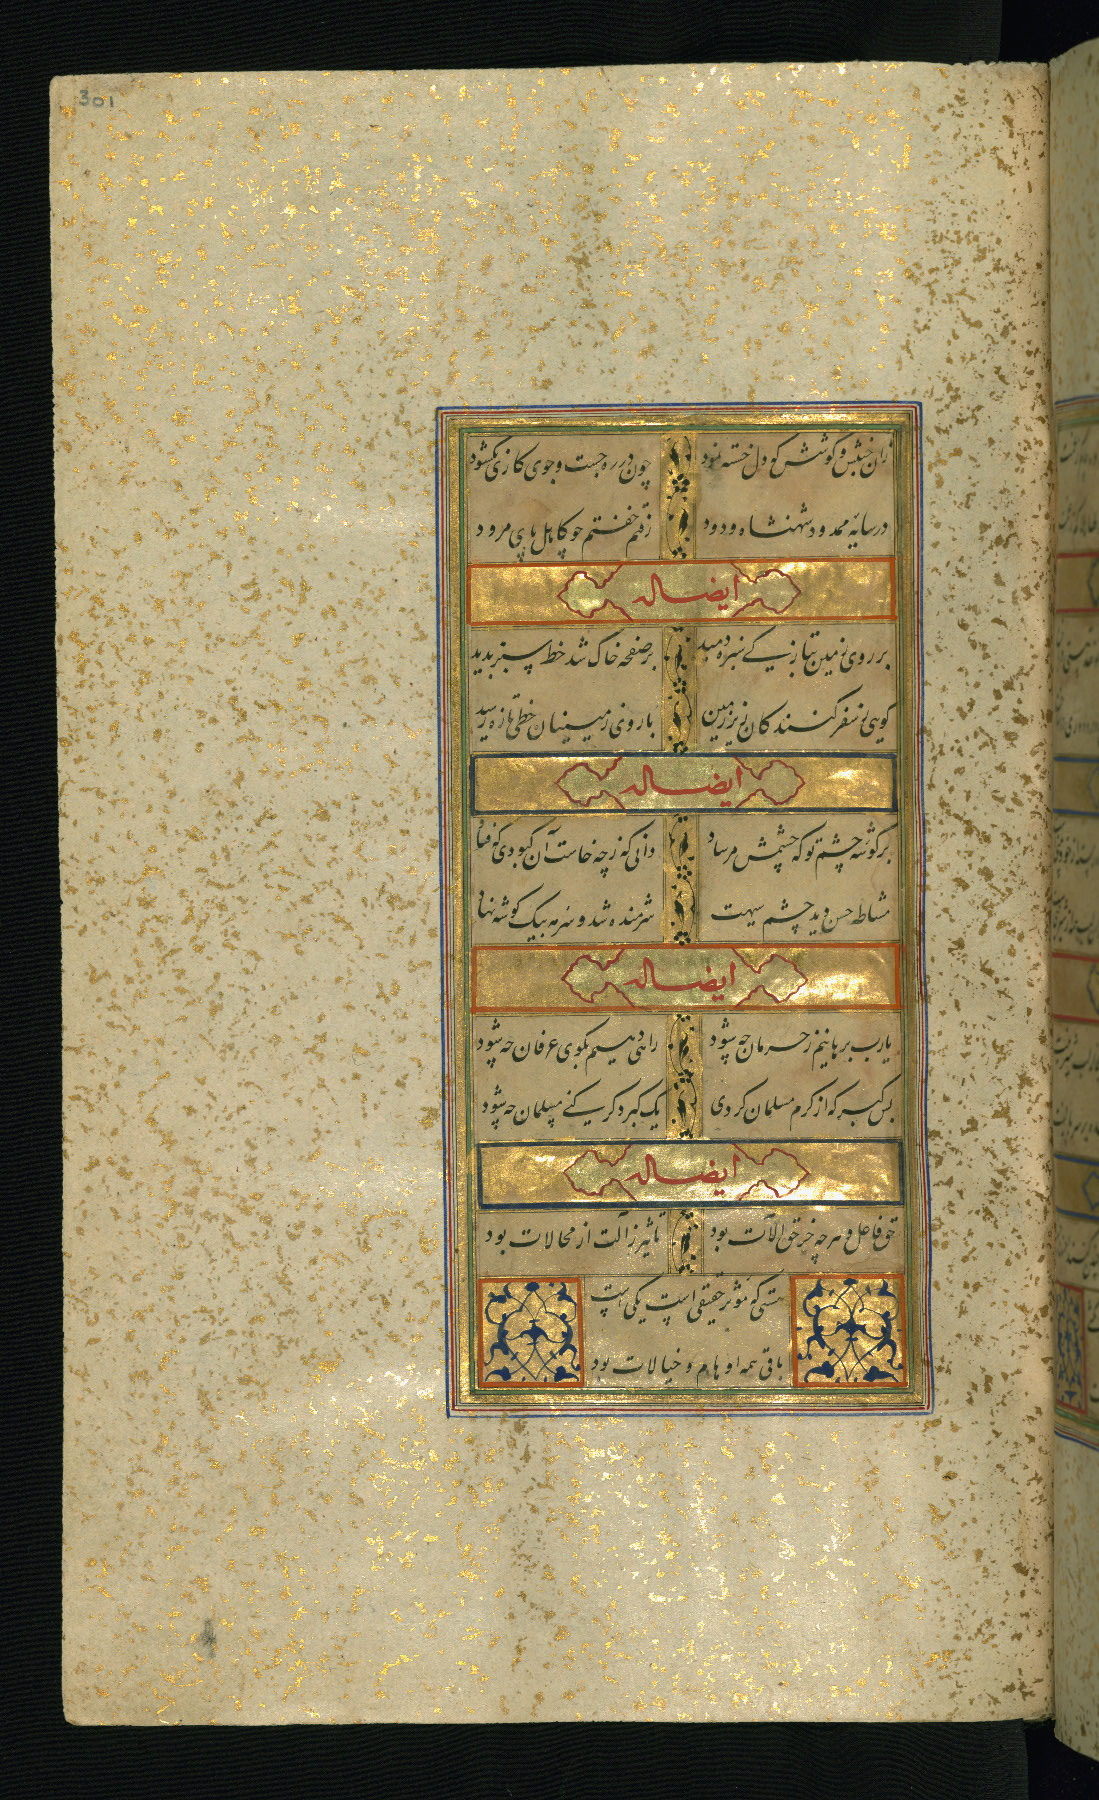 301
زان جنبش و کوشش کو دل خسته نبود چون در ره جست و جوی کاری نکشود
در سایه ممدود شهنشاه ودود رفتم خفتم چو کاهل های مرود
ایضا له
بر روی زمین بتازیکی سبزه دمید بر صفحه خاک شد خط سبز بدید
کویی ز سفر کنندکان زیر زمین با روی زمینیان خطی تازه رسید
ایضا له
بر کوشه چشم تو که چشمش مرساد دانی که ز چه خاست آن کبودی که فتاد
مشاطه حسن دید چشم سیهت شرمنده شد و سرمه بیک کوشه نهاد
ایضا له
یارب برهانیم ز حرمان چه شود راهی دهیم بکوی عرفان چه شود
بس کبر که از کرم مسلمان کردی یک کبر دکر کنی مسلمان چه شود
ایضا له
حق فاعل و هر چه جز حق آلات بود تاثیر ز آلت از محالات بود
هستی که موثر حقیقی است یکی است
باقی همه اوهام و خیالات بود